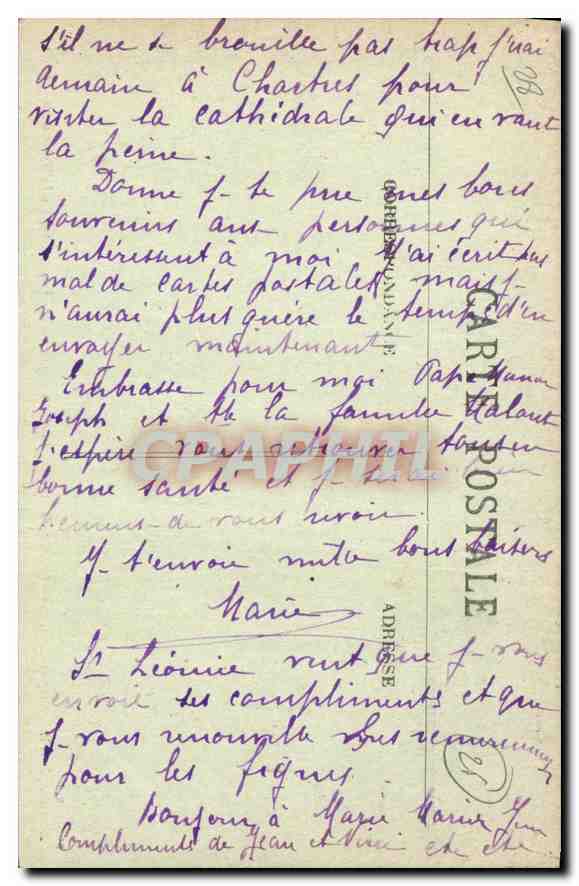 s'il ne se brouille pas trop j'irai
demain à Chartres pour
visiter la cathédrale qui en vaut
la peine.
Donne j- te prie mes bons
souvenirs aux personnes qui
s'intéressent à moi J'ai écrit pas
mal de cartes postales mais j-
n'aurai plus guère le temps d'en
envoyer maintenant
Embrasse pour moi Papa Maman
Joseph et tte la famille
J'espère vous retrouver tous en
bonne santé et j- serai
de vous revoir
J- t'envoie mille bons baisers
Marie
Sr Léonie veut que j- vous
envoie ses compliments et que
j- vous renouvelle ses remerciements
pour les figues
Bonjour à Marie Marie
Compliments de Jean et etc etc
28
25
CARTE POSTALE
CORRESPONDANCE
ADRESSE
CAPHILA